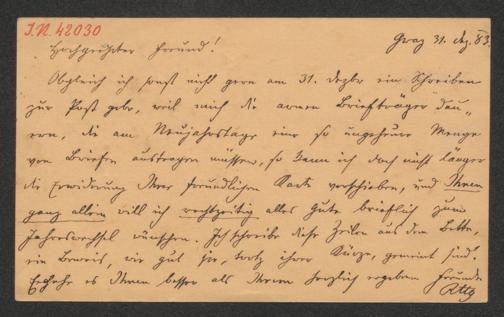 I.N. 42030
Graz 31. Dez. 83.
Hochgeehrter Freund!
Obgleich ich sonst nicht gern am 31. Dezbr ein Schreiben
zur Post gebe, weil mich die armen Briefträger dau-
ern, die am Neujahrstage eine so ungeheure Menge
von Briefen austragen müssen, so kann ich doch nicht länger
die Erwiderung Ihrer freundlichen Karte verschieben, und Ihnen
ganz allein will ich rechtzeitig alles Gute brieflich zum
Jahreswechsel wünschen. Ich schreibe diese Zeilen aus dem Bette,
ein Beweis, wie gut sie, trotz ihrer Kürze, gemeint sind.
Ergehe es Ihnen besser als Ihrem herzlich ergebenen Freunde